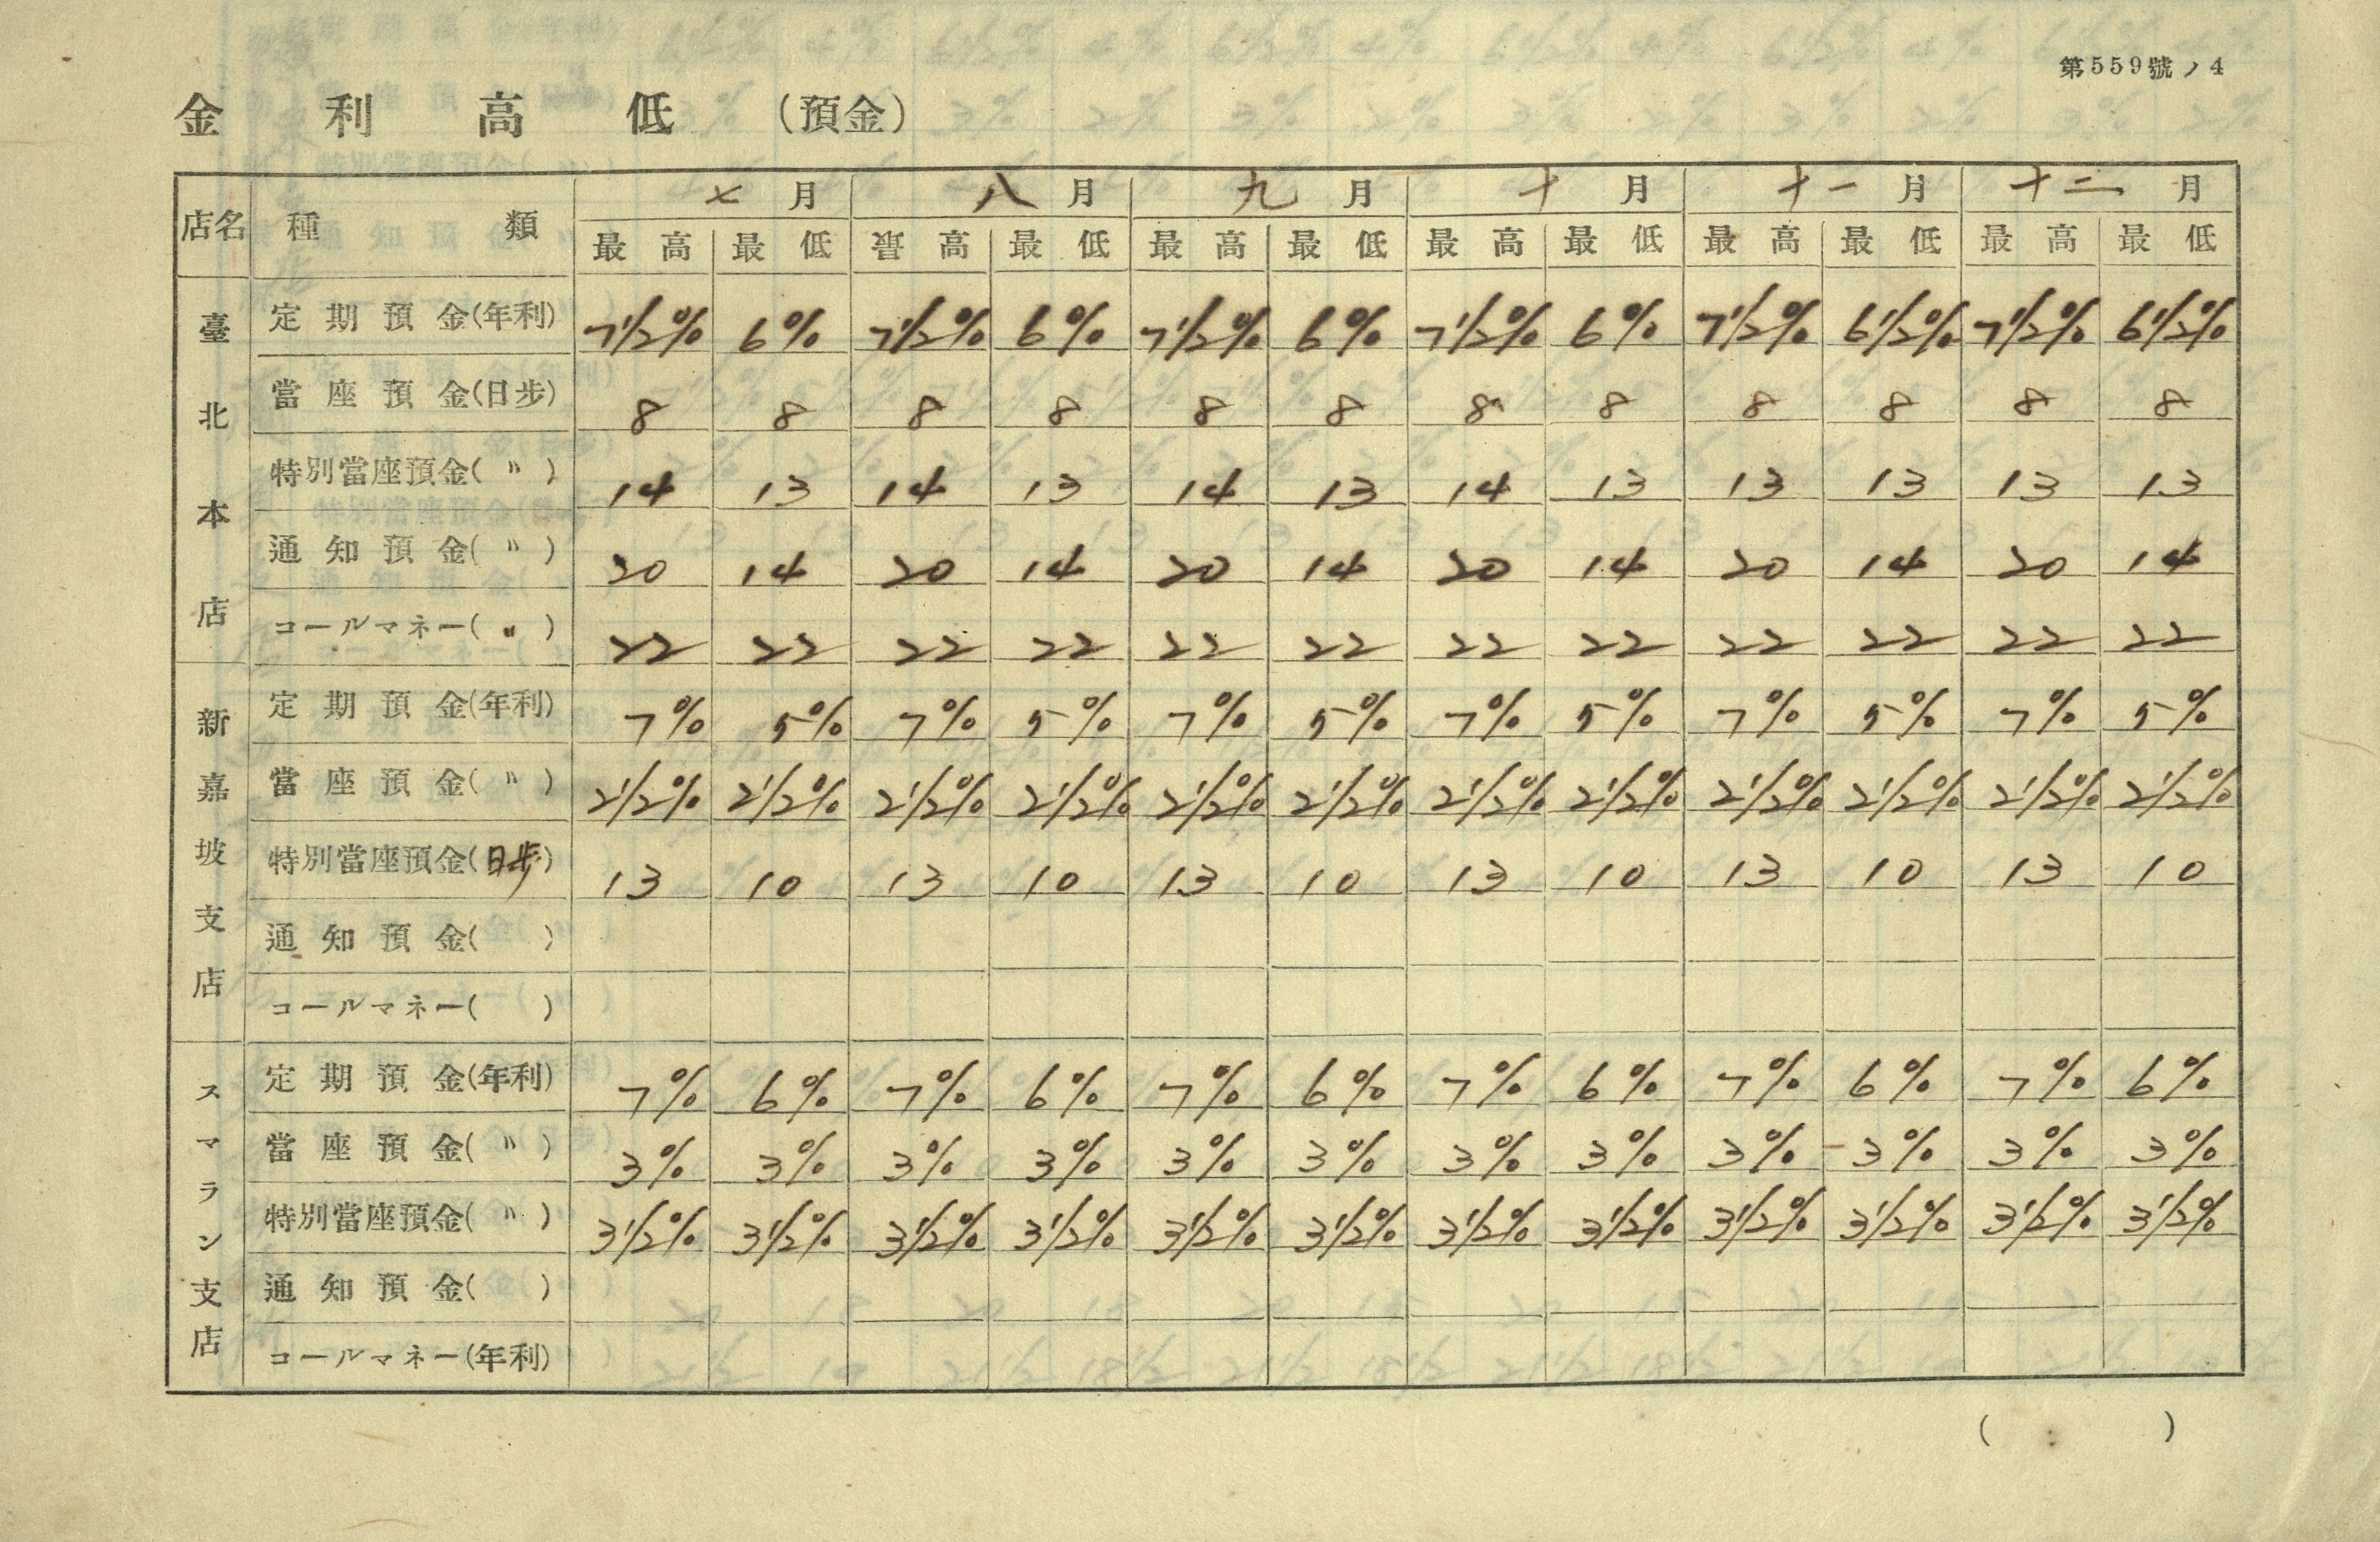 第559號ノ4
金利高低（預金）
店名 種類 七月 八月 九月 十月 十一月 十二月
最高 最低 最高 最低 最高 最低 最高 最低 最高 最低 最高 最低
臺北本店
定期預金(年利) 7 1/2% 6% 7 1/2% 6% 7 1/2% 6% 7 1/2% 6% 7 1/2% 6 1/2% 7 1/2% 6 1/2%
當座預金(日步) 8 8 8 8 8 8 8 8 8 8 8 8
特別當座預金(〃) 14 13 14 13 14 13 14 13 13 13 13 13
通知預金(〃) 20 14 20 14 20 14 20 14 20 14 20 14
コールマネー(〃) 22 22 22 22 22 22 22 22 22 22 22 22
新嘉坡支店
定期預金(年利) 7% 5% 7% 5% 7% 5% 7% 5% 7% 5% 7% 5%
當座預金(〃) 2 1/2% 2 1/2% 2 1/2% 2 1/2% 2 1/2% 2 1/2% 2 1/2% 2 1/2% 2 1/2% 2 1/2% 2 1/2% 2 1/2%
特別當座預金(日步) 13 10 13 10 13 10 13 10 13 10 13 10
通知預金( )
コールマネー( )
スマラン支店
定期預金(年利) 7% 6% 7% 6% 7% 6% 7% 6% 7% 6% 7% 6%
當座預金(〃) 3% 3% 3% 3% 3% 3% 3% 3% 3% 3% 3% 3%
特別當座預金(〃) 3 1/2% 3 1/2% 3 1/2% 3 1/2% 3 1/2% 3 1/2% 3 1/2% 3 1/2% 3 1/2% 3 1/2% 3 1/2% 3 1/2%
通知預金( )
コールマネー(年利)
( )